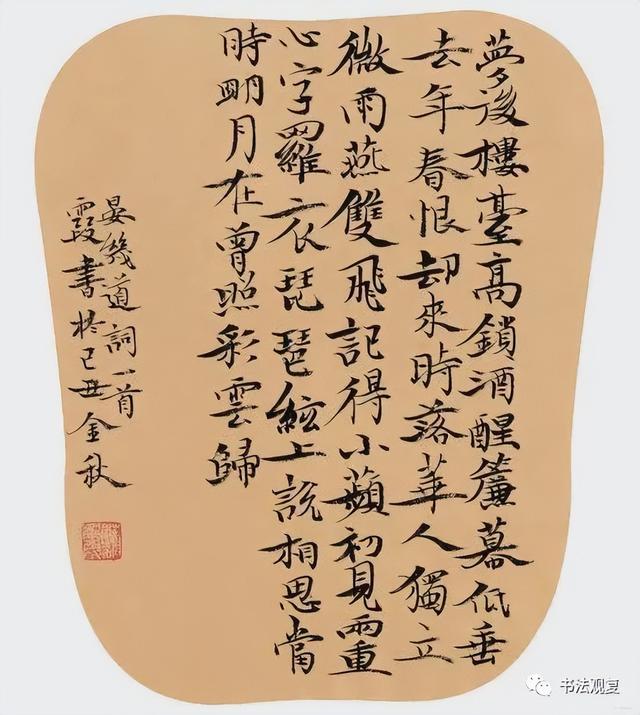 夢後樓臺高鎖酒醒簾幕低垂
去年春恨却來時落華人獨立
微雨燕雙飛記得小蘋初見兩重
心字羅衣琵琶絃上說相思當
時明月在曾照彩雲歸
晏幾道詞一首
霞書於己丑金秋
书法观复